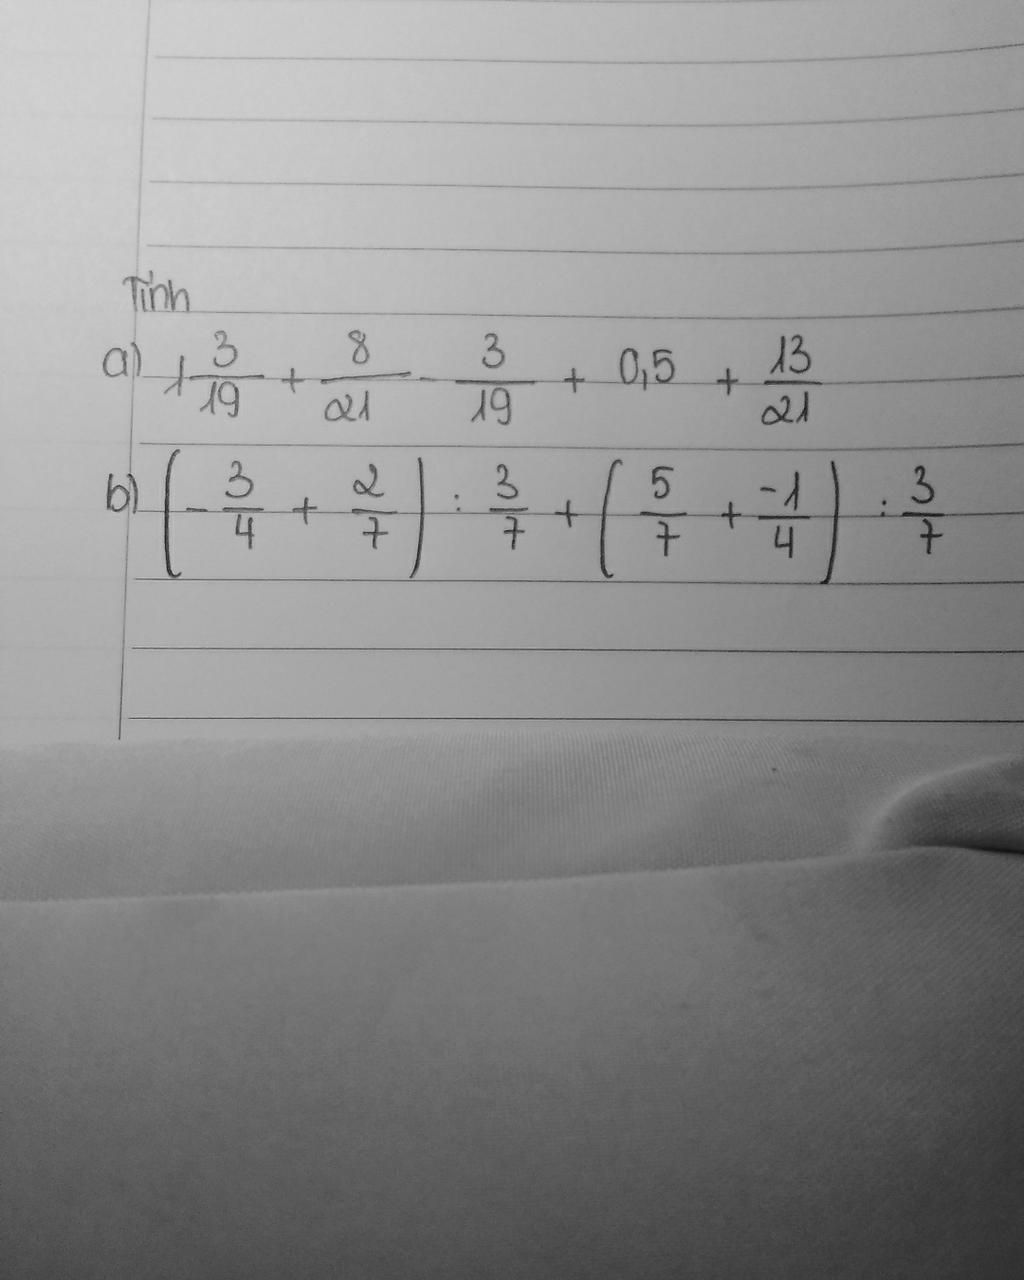 Tính
a) 1 3/19 + 8/21 - 3/19 + 0,5 + 13/21
b) (- 3/4 + 2/7) : 3/7 + (5/7 + -1/4) : 3/7